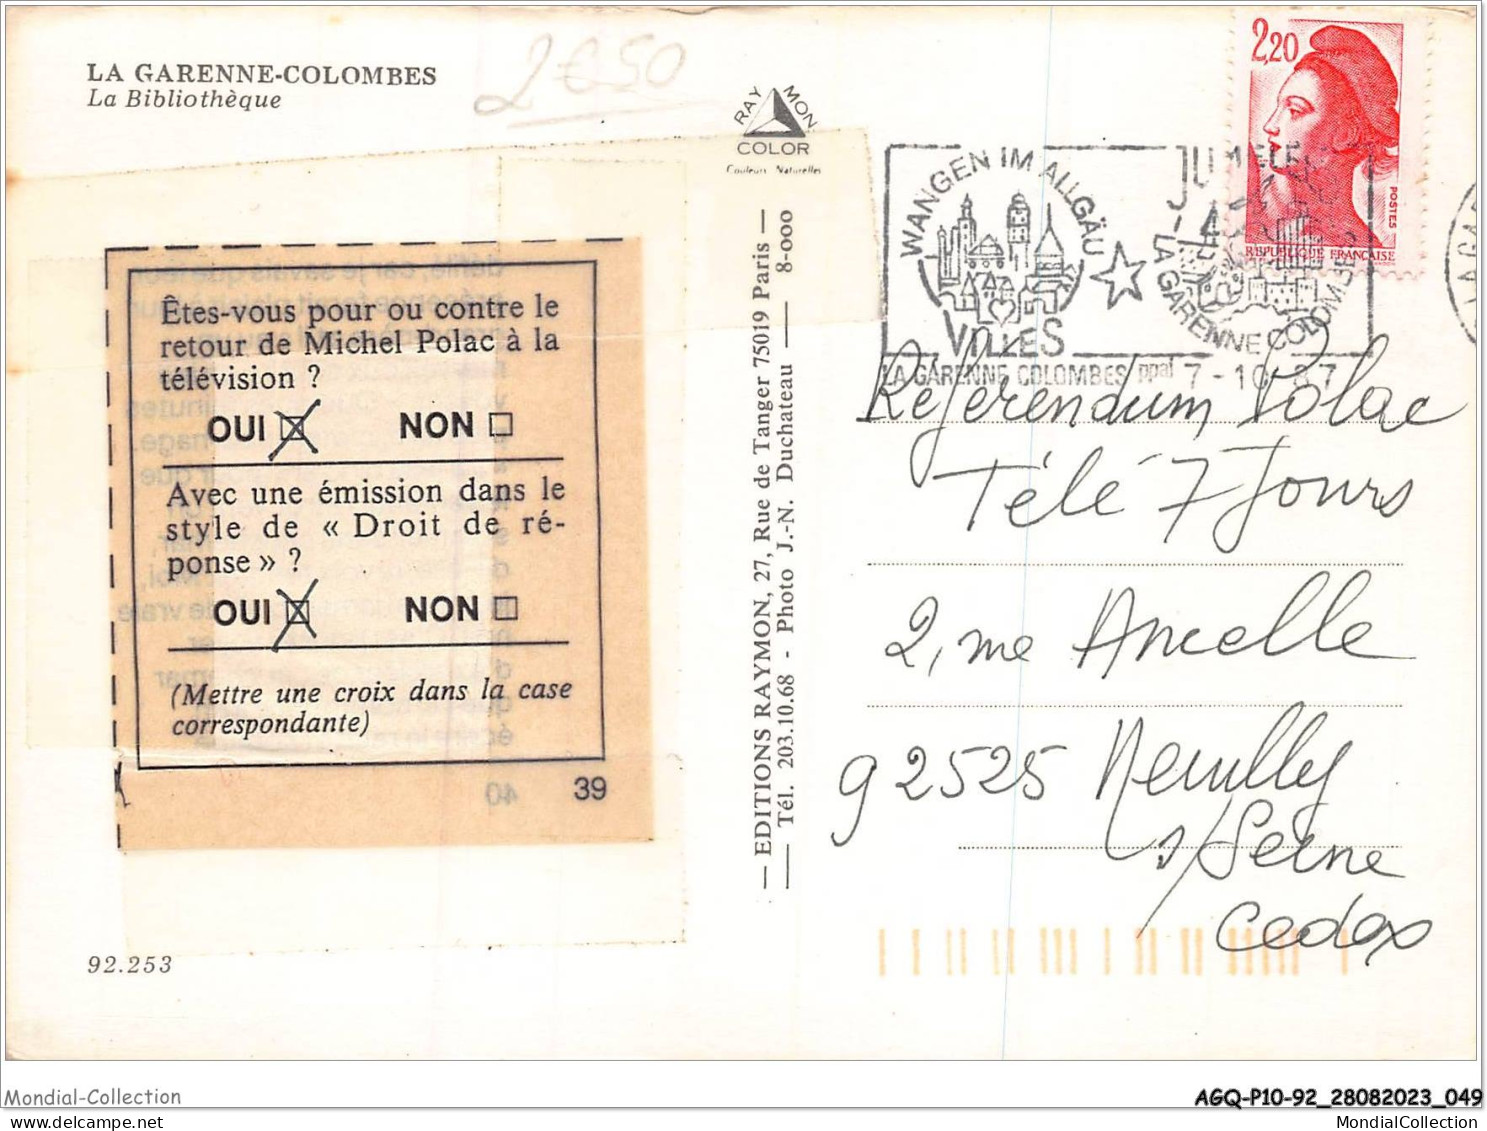 LA GARENNE-COLOMBES
La Bibliothèque
2€50
RAYMON
COLOR
Couleurs Naturelles
2,20
POSTES
REPUBLIQUE FRANÇAISE
WANGEN IM ALLGÄU
VILLES
LA GARENNE COLOMBES
LA GARENNE COLOMBES ppal 7-10-87
Êtes-vous pour ou contre le
retour de Michel Polac à la
télévision ?
OUI NON
Avec une émission dans le
style de « Droit de ré-
ponse » ?
OUI NON
(Mettre une croix dans la case
correspondante)
39
40
92.253
— EDITIONS RAYMON, 27, Rue de Tanger 75019 Paris —
— Tél. 203.10.68 - Photo J.-N. Duchateau — 8-000
Référendum Polac
Télé 7 Jours
2, rue Ancelle
92525 Neuilly
s/Seine
Cedex
Mondial-Collection
AGQ-P10-92_28082023_049
MondialCollection